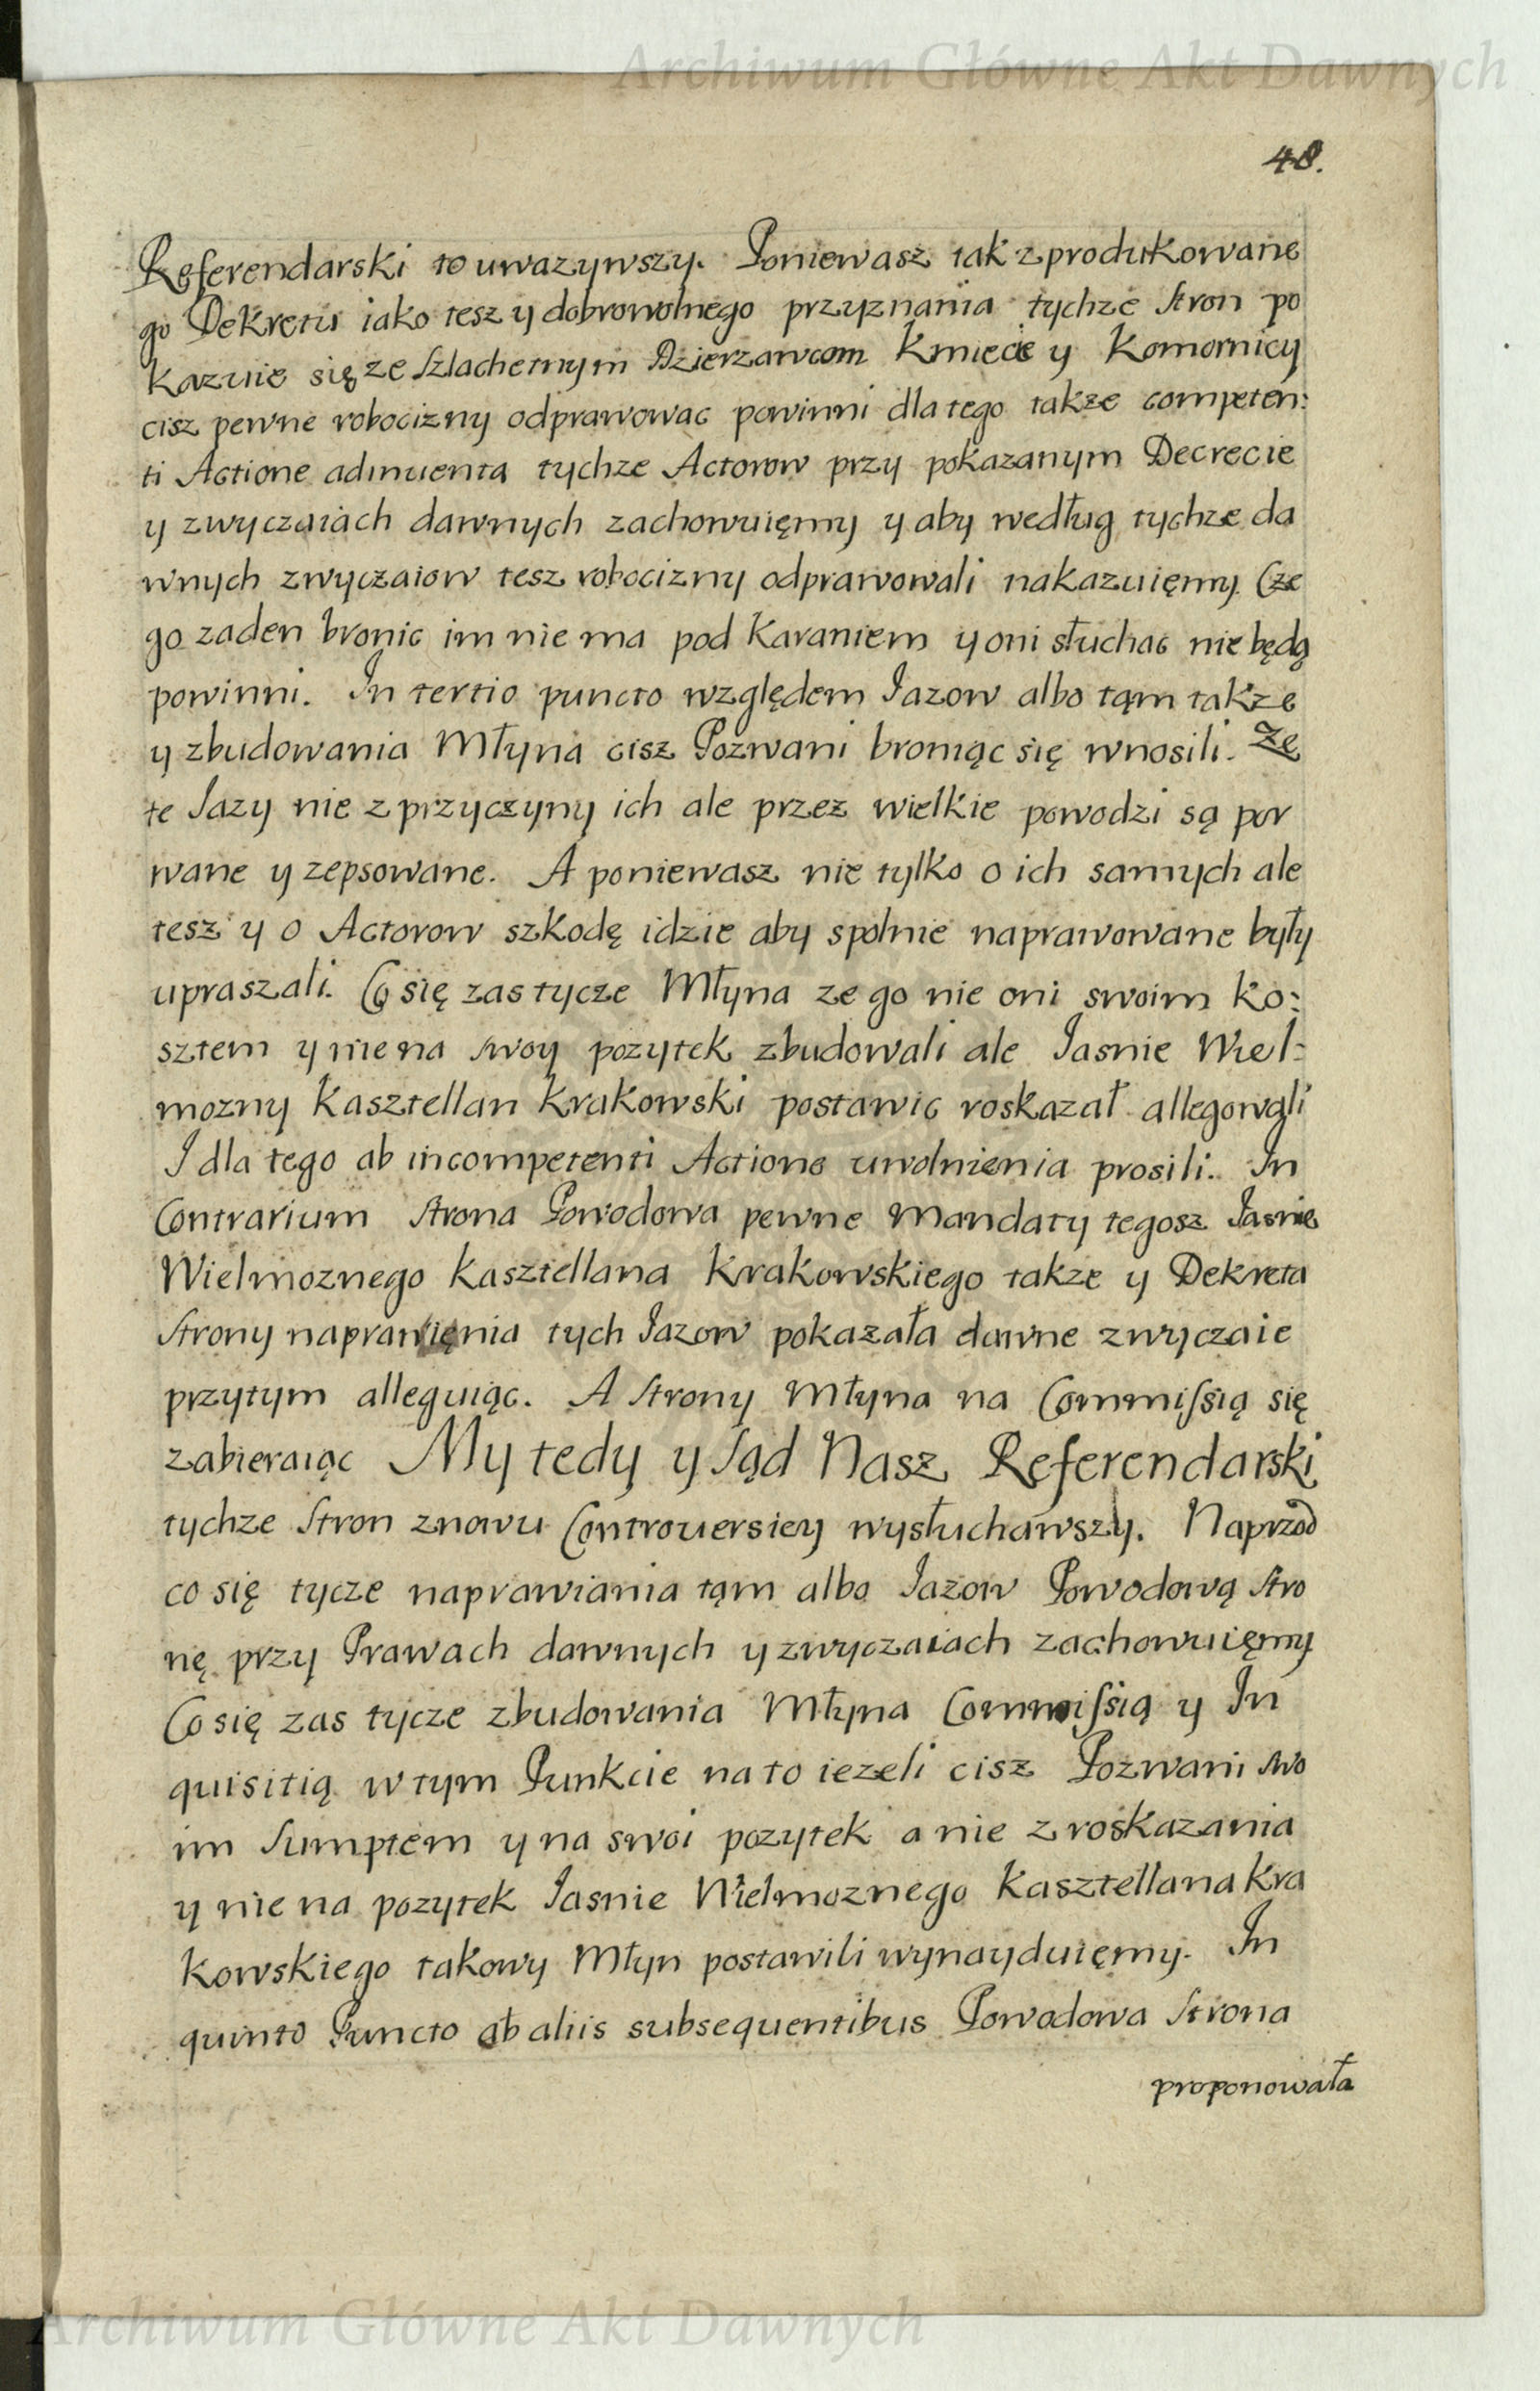 Archiwum Główne Akt Dawnych
48.
Referendarski to uwazywszy. Poniewasz tak z produkowane
go Dekretu iako tesz y dobrowolnego przyznania tychze stron po
kazuie się ze szlachetnym Dzierzawcom Kmiecie y Komornicy
cisz pewne robocizny odprawowac powinni dla tego takze competen:
ti Actione adinuenta tychze Actorow przy pokazanym Decrecie
y zwyczaiach dawnych zachowuięmy y aby według tychze da
wnych zwyczaiow tesz robocizny odprawowali nakazuięmy. Cze
go zaden bronic im nie ma pod karaniem y oni słuchac nie będą
powinni. In tertio puncto względem Iazow albo tąm takze
y zbudowania Młyna cisz Pozwani broniąc się wnosili. Ze
te Iazy nie z przyczyny ich ale przez wielkie powodzi są por
wane y zepsowane. A poniewasz nie tylko o ich samych ale
tesz y o Actorow szkodę idzie aby spolnie naprawowane były
upraszali. Co się zas tycze Młyna ze go nie oni swoim ko:
sztem y nie na swoy pozytek zbudowali ale Iasnie Wiel:
mozny Kasztellan Krakowski postawic roskazał allegowali
I dla tego ab incompetenti Actione uwolnienia prosili. In
Contrarium strona Powodowa pewne Mandaty tegosz Iasnie
Wielmoznego Kasztellana Krakowskiego takze y Dekreta
strony naprawięnia tych Iazow pokazała dawne zwyczaie
przytym alleguiąc. A strony Młyna na Commissią się
zabieraiąc My tedy y sąd Nasz Referendarski
tychze stron znowu Controuersiey wysłuchawszy. Naprzod
co się tycze naprawiania tąm albo Iazow Powodową stro
nę przy Prawach dawnych y zwyczaiach zachowuięmy
Co się zas tycze zbudowania Młyna Commissią y In
quisitią w tym Punkcie na to iezeli cisz Pozwani swo
im sumptem y na swoi pozytek a nie z roskazania
y nie na pozytek Iasnie Wielmoznego Kasztellana Kra
kowskiego takowy Młyn postawili wynayduięmy. In
quinto Puncto ab aliis subsequentibus Powodowa strona
proponowała
Archiwum Główne Akt Dawnych